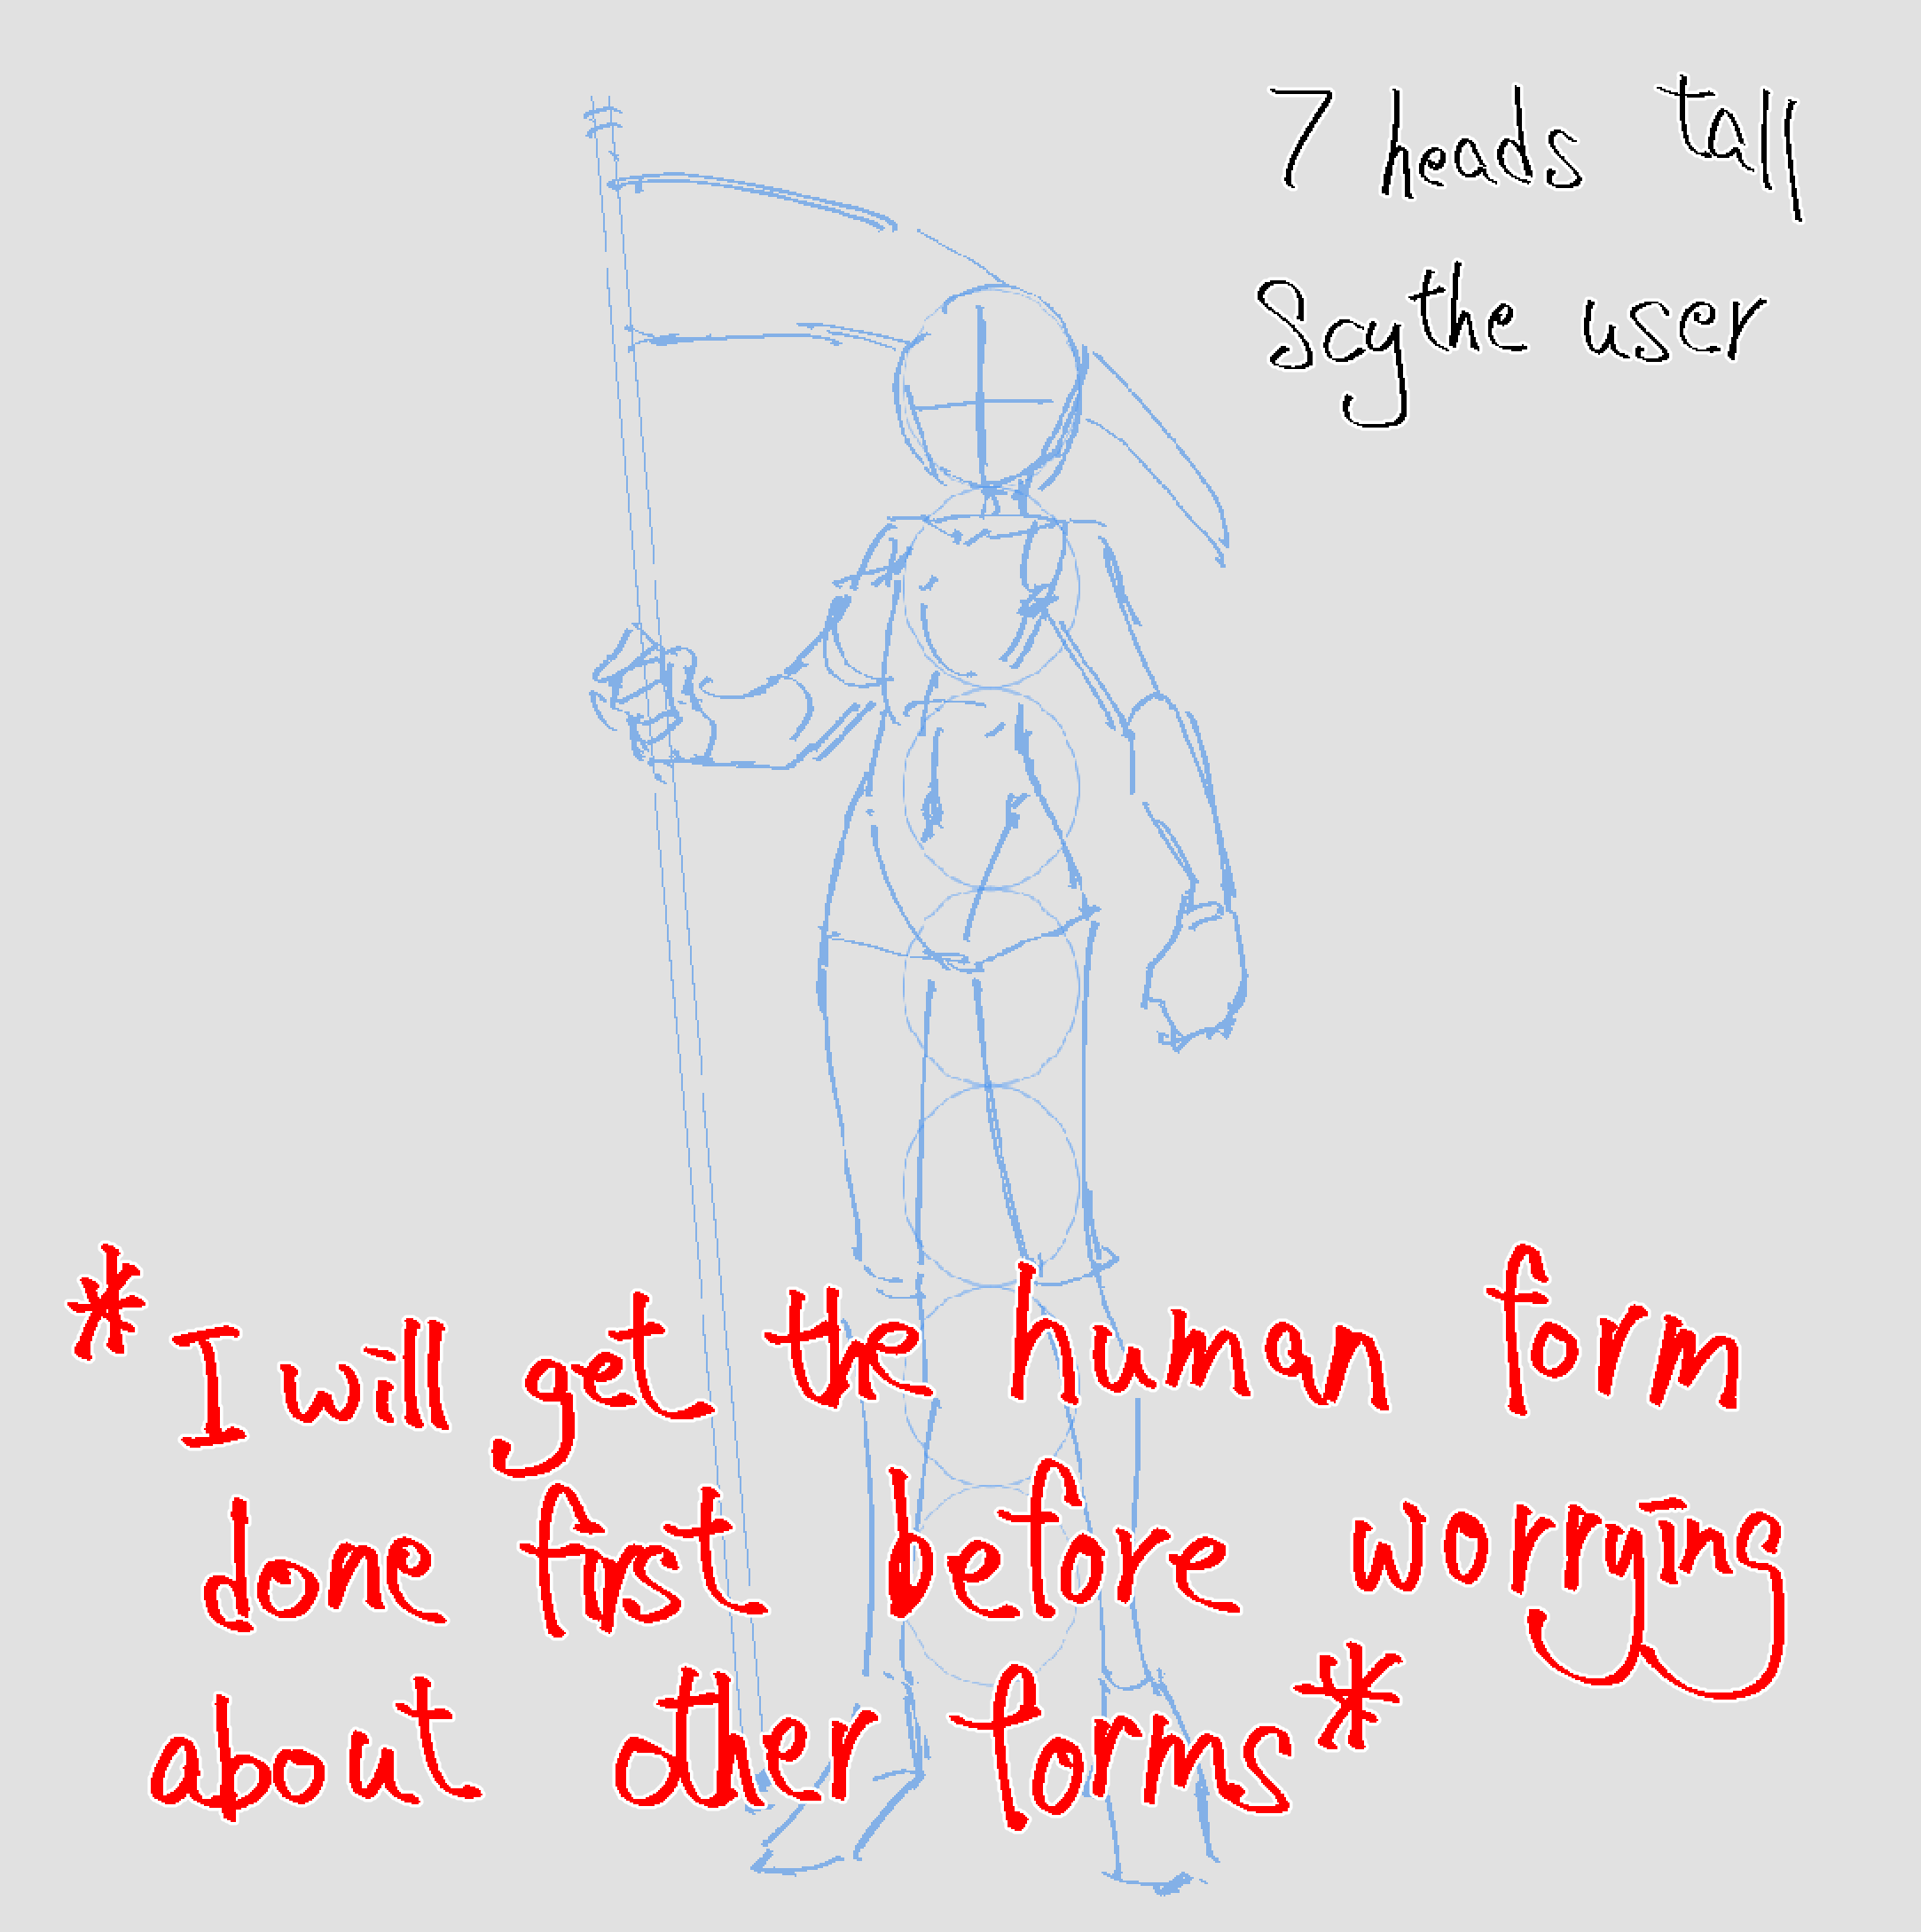 7 heads tall
Scythe user
*I will get the human form
done first before worrying
about other forms*